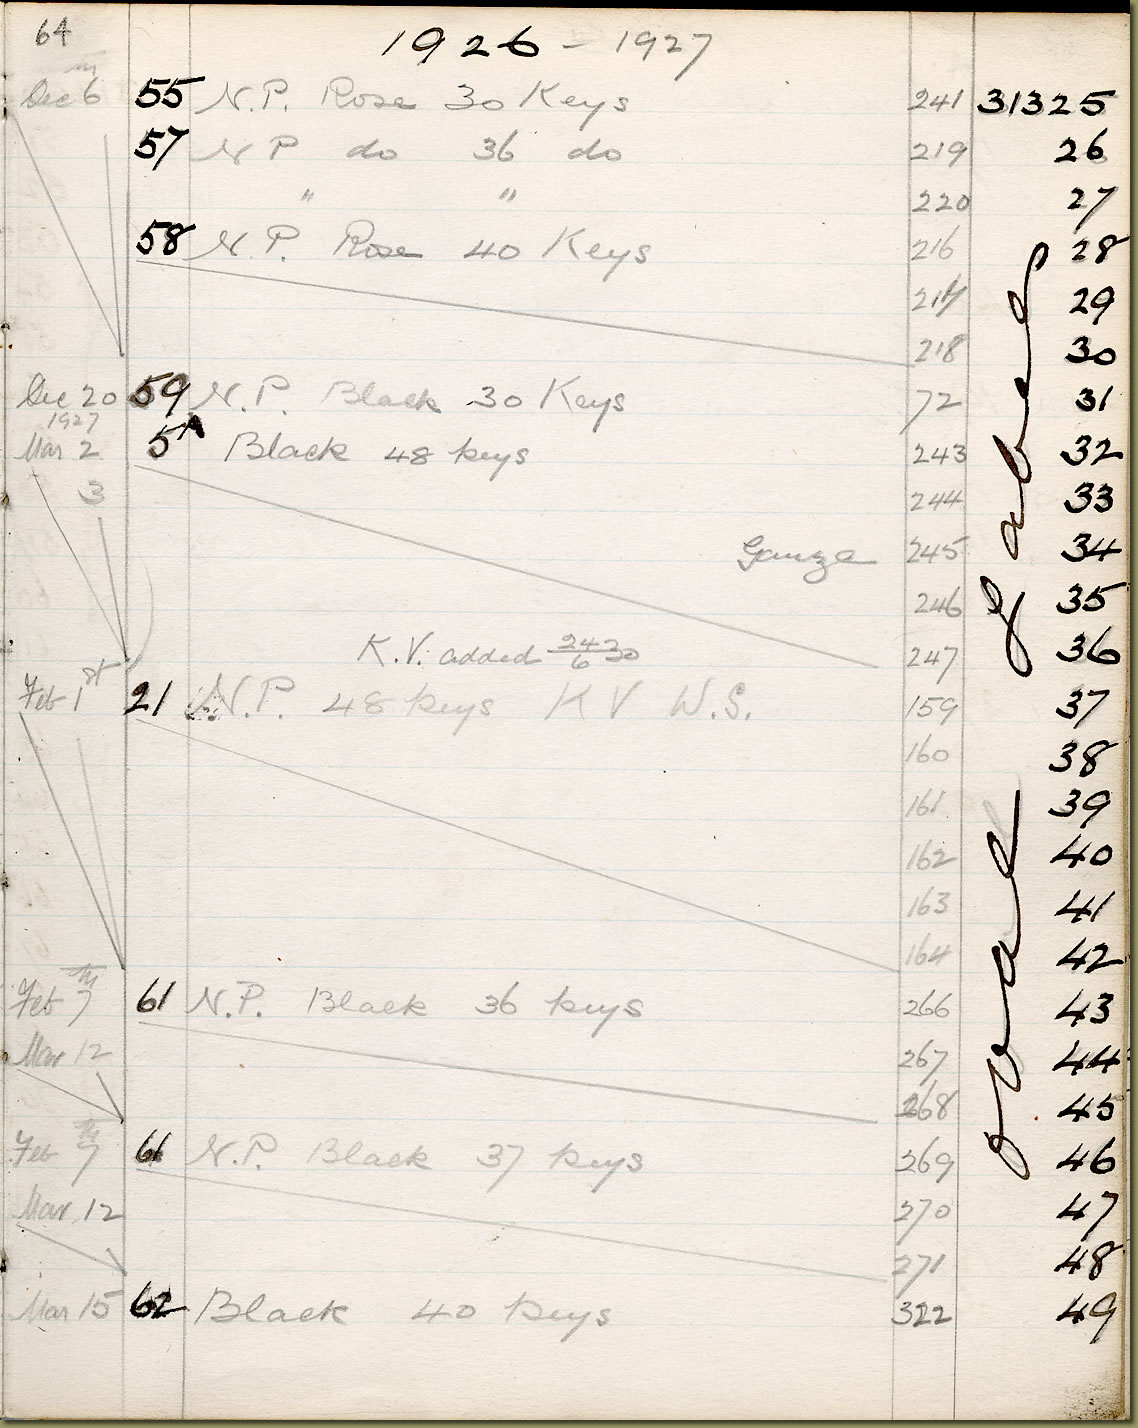 64
1926 - 1927
Dec 6 th 55 N.P. Rose 30 Keys 241 31325
57 N P do 36 do 219 26
" " 220 27
58 N.P. Rose 40 Keys 216 28
217 29
218 30
Dec 20 59 N.P. Black 30 Keys 72 31
1927
Mar 2 5A Black 48 keys 243 32
3 244 33
Gauze 245 34
246 35
K.V. added 24/6 30 247 36
Feb 1st 21 N.P. 48 keys K V W.S. 159 37
160 38
161 39
162 40
163 41
164 42
Feb 7th 61 N.P. Black 36 keys 266 43
Mar 12 267 44
268 45
Feb 7th 61 N.P. Black 37 keys 269 46
Mar 12 270 47
271 48
Mar 15 62 Black 40 keys 322 49
oval Label